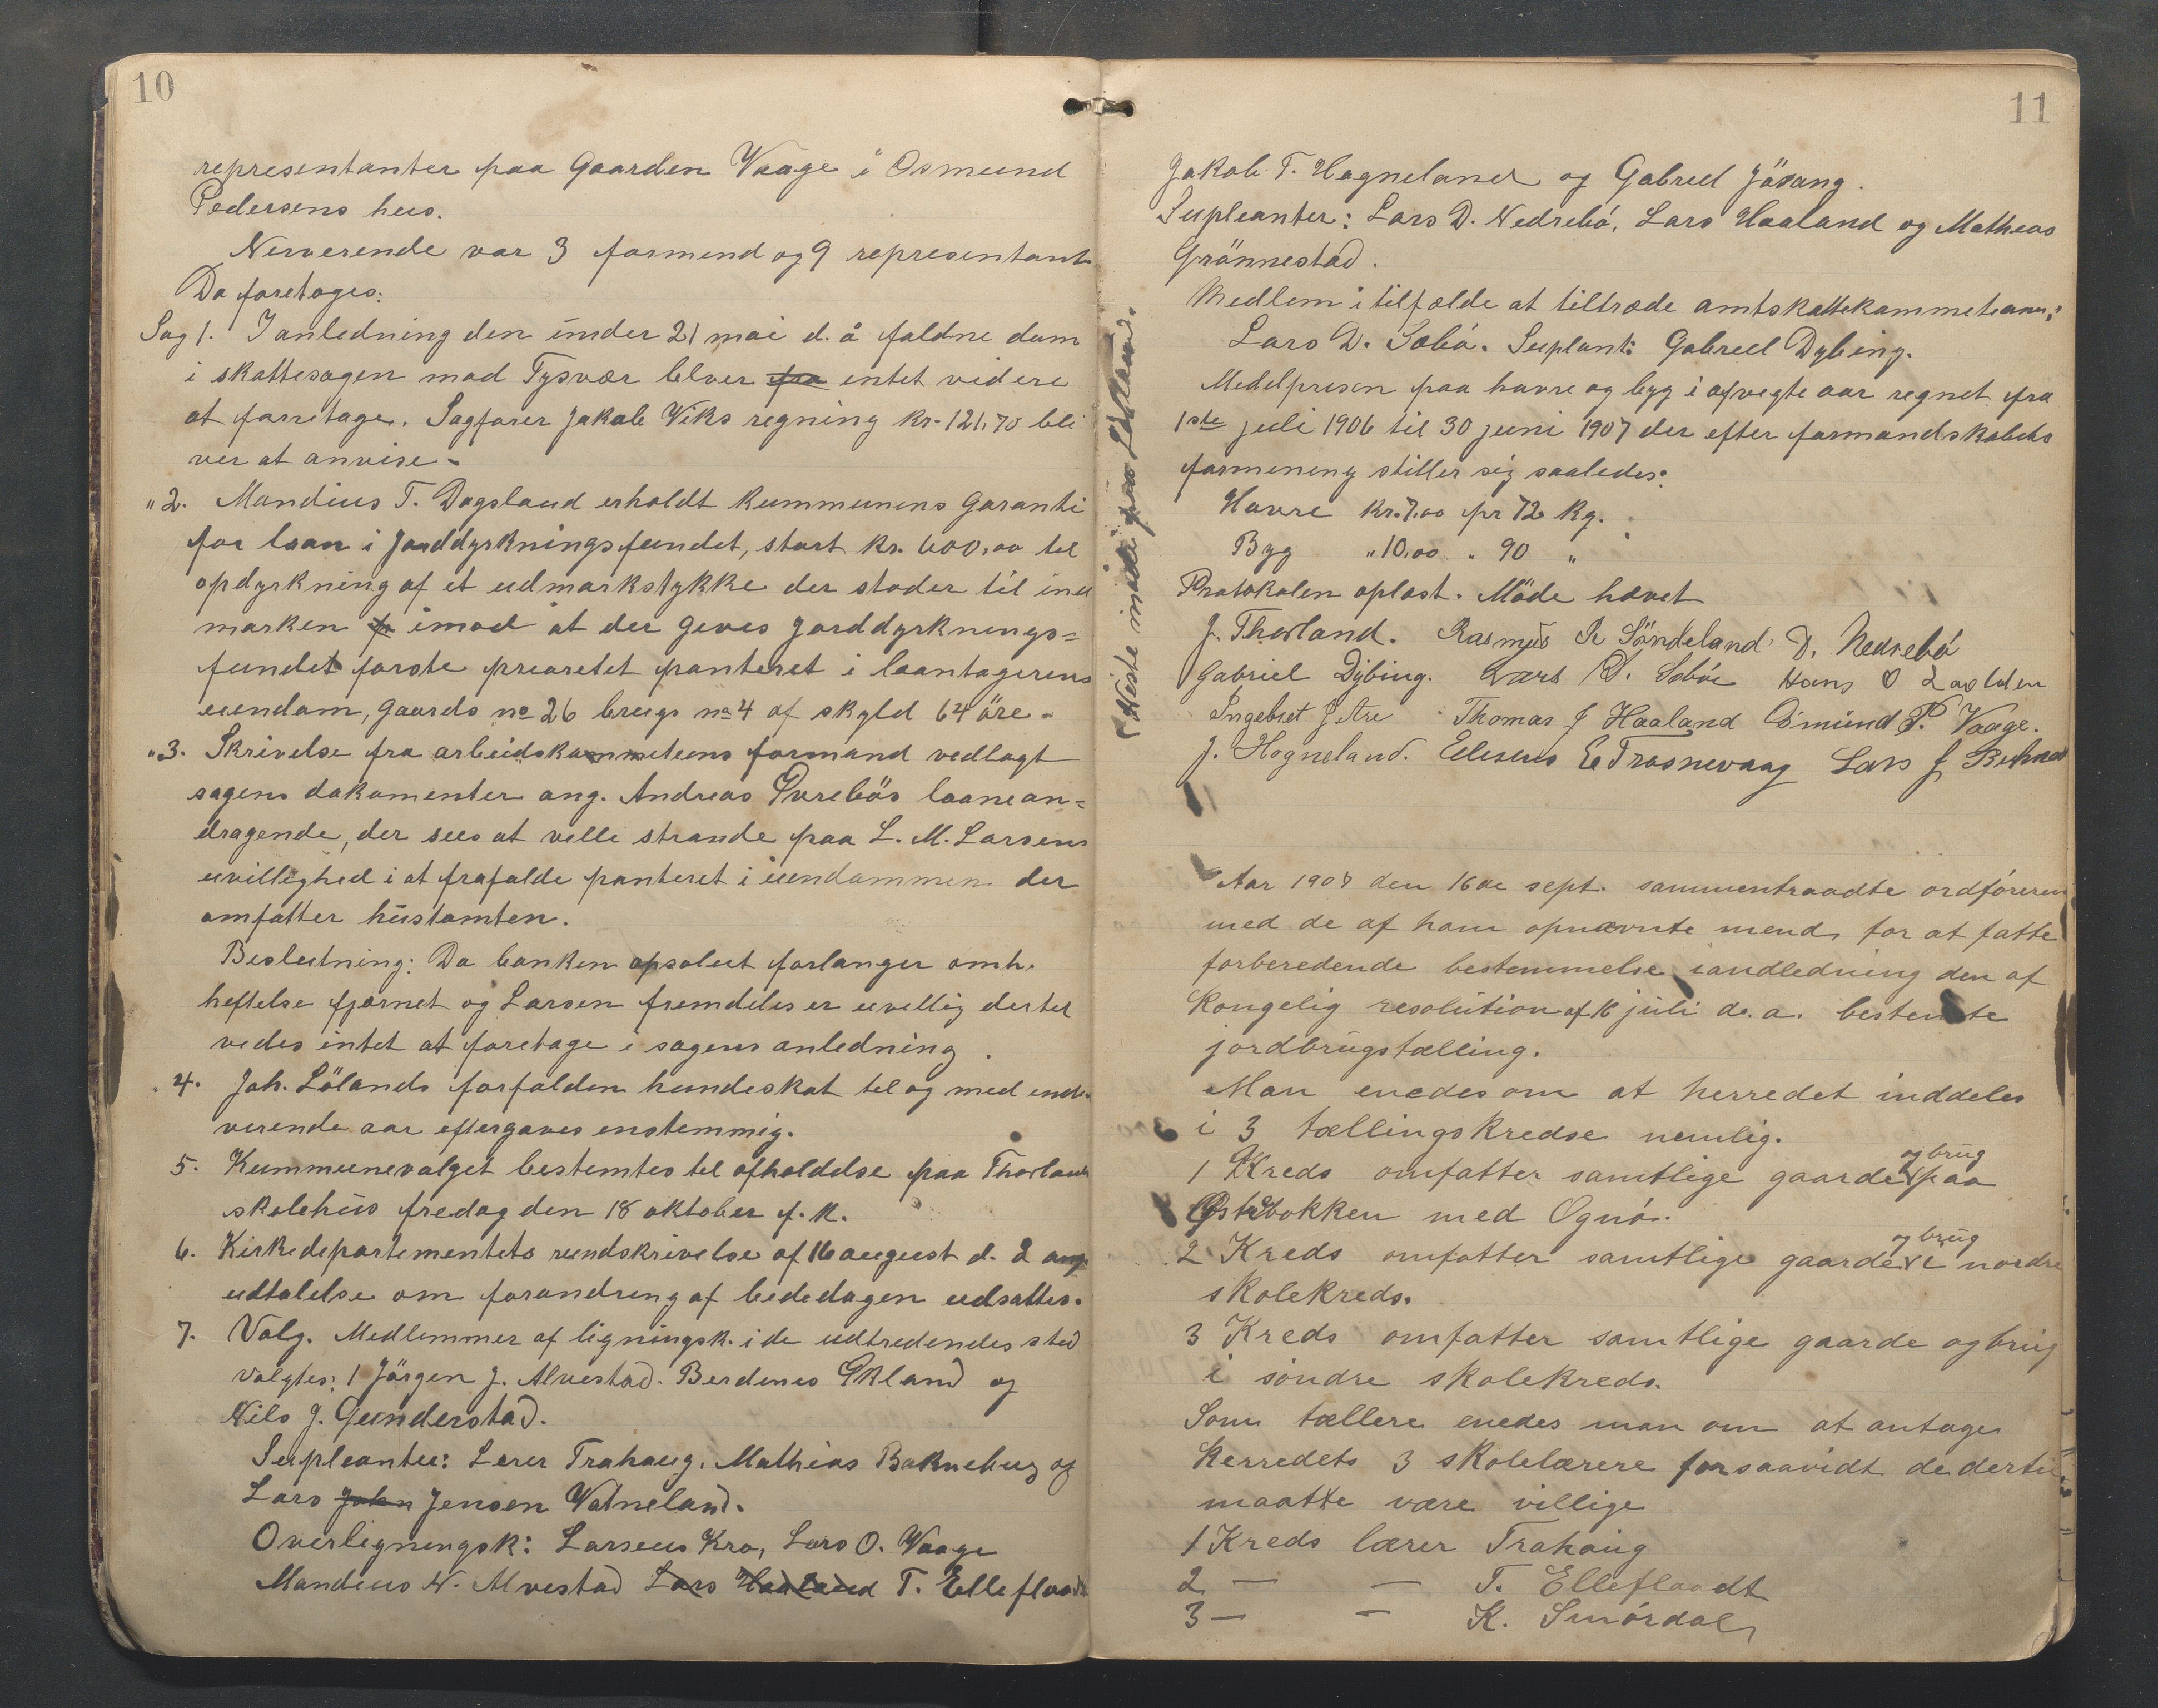 10
representanter paa Gaarden Vaage i Osmund
Pedersens hus.
Nerverende var 3 formend og 9 representant
Da foretoges:
Sag 1. I anledning den under 21 mai d. å faldne dom
i skattesagen mod Tysvær blver fra intet videre
at forretage. Sagfører Jakob Viks regning kr. 121,70 bli
ver at anvise -
" 2. Mandius T. Dagsland erholdt kummunens Garanti
for laan i Jorddyrkningsfundet, stort kr. 600,00 til
opdyrkning af et udmarkstykke der stoder til ind
marken fr imod at der gives Jorddyrknings=
fundet forste prioretet panteret i laantagerens
eiendom, gaards no 26 brugs no 4 af skyld 64 öre -
" 3. Skrivelse fra arbeidskommiteens formand vedlagt
sagens dokumenter ang. Andreas Svrebös laanean=
dragende, der sees at ville strande paa L. M. Larsens
uvillighed i at frafalde panteret i eiendommen der
omfatter hüstomten.
Beslutning: Da banken apsolut forlanger omh.
heftelse fjærnet og Larsen fremdeles er uvillig dertil
vedes intet at foretage i sagens anledning.
4. Joh. Lölands forfalden hundeskat til og med inde-
verende aar eftergaves enstemmig.
5. Kummunevalget bestemtes til afholdelse paa Thorlands
skolehüs fredag den 18 oktober f. k.
6. Kirkedepartementets rundskrivelse af 16 august d. å ang.
udtalelse om forandring af bededagen udsattes.
7. Valg. Medlemmer af ligningsk. i de udtredendes sted
valgtes: 1 Jörgen J. Alvestad. Berdines Økland og
Nils J. Gunderstad.
Supleanter: Lerer Trahaug, Mathias Bakneberg og
Lars John Jensen Vatneland.
Overligningsk: Larseus Kro, Lars O. Vaage
Mandius N. Alvestad Lars Haaland T. Elleflaadt
Neste möde paa Lölland.
11
Jakob T. Hogneland og Gabriel Jösang.
Supleanter: Lars D. Nedrebó, Lars Haaland og Matheas
Grönnestad.
Medlem i tilfælde at tiltræde amtskattekommeteen:
Lars D. Sæbó. Suplant: Gabriel Dybing.
Medelprisen paa havre og byg i afvegte aar regnet fra
1ste juli 1906 til 30 juni 1907 der efter formandskabets
formening stiller sig saaledes:
Havre kr. 7.00 pr 72 kg.
Byg " 10.00 " 90 "
Protokolen oplæst. Möde hævet
J. Thorland. Rasmus R Söndeland D. Nedrebó
Gabriel Dybing. Lars D. Sæbóe Hans O Laalden
Ingebret J Are Thomas J Haaland Osmünd P. Vaage.
J. Hogneland. Eliseus E Trosnevaag Lars J
Aar 1907 den 16de sept. sammentraadte ordføreren
med de af ham opnævnte mend for at fatte
forberedende bestemmelse iandledning den af
Kongelig resolütion af 16 jüli d. a. bestemte
jordbrügstælling.
Man enedes om at herredet inddeles
i 3 tællingskredse nemlig.
1 Kreds omfatter samtlige gaarde og brüg paa
Østrebokken med Ognó.
2 Kreds omfatter samtlige gaarde og brüg i nordre
skolekreds.
3 Kreds omfatter samtlige gaarde og brüg
i sóndre skolekreds.
Som tællere enedes man om at antage
Herredets 3 skolelærere forsaavidt de dertil
maatte være villige
1 Kreds lærer Trahaüg
2 — — T. Elleflaadt
3 — — K. Smórdal